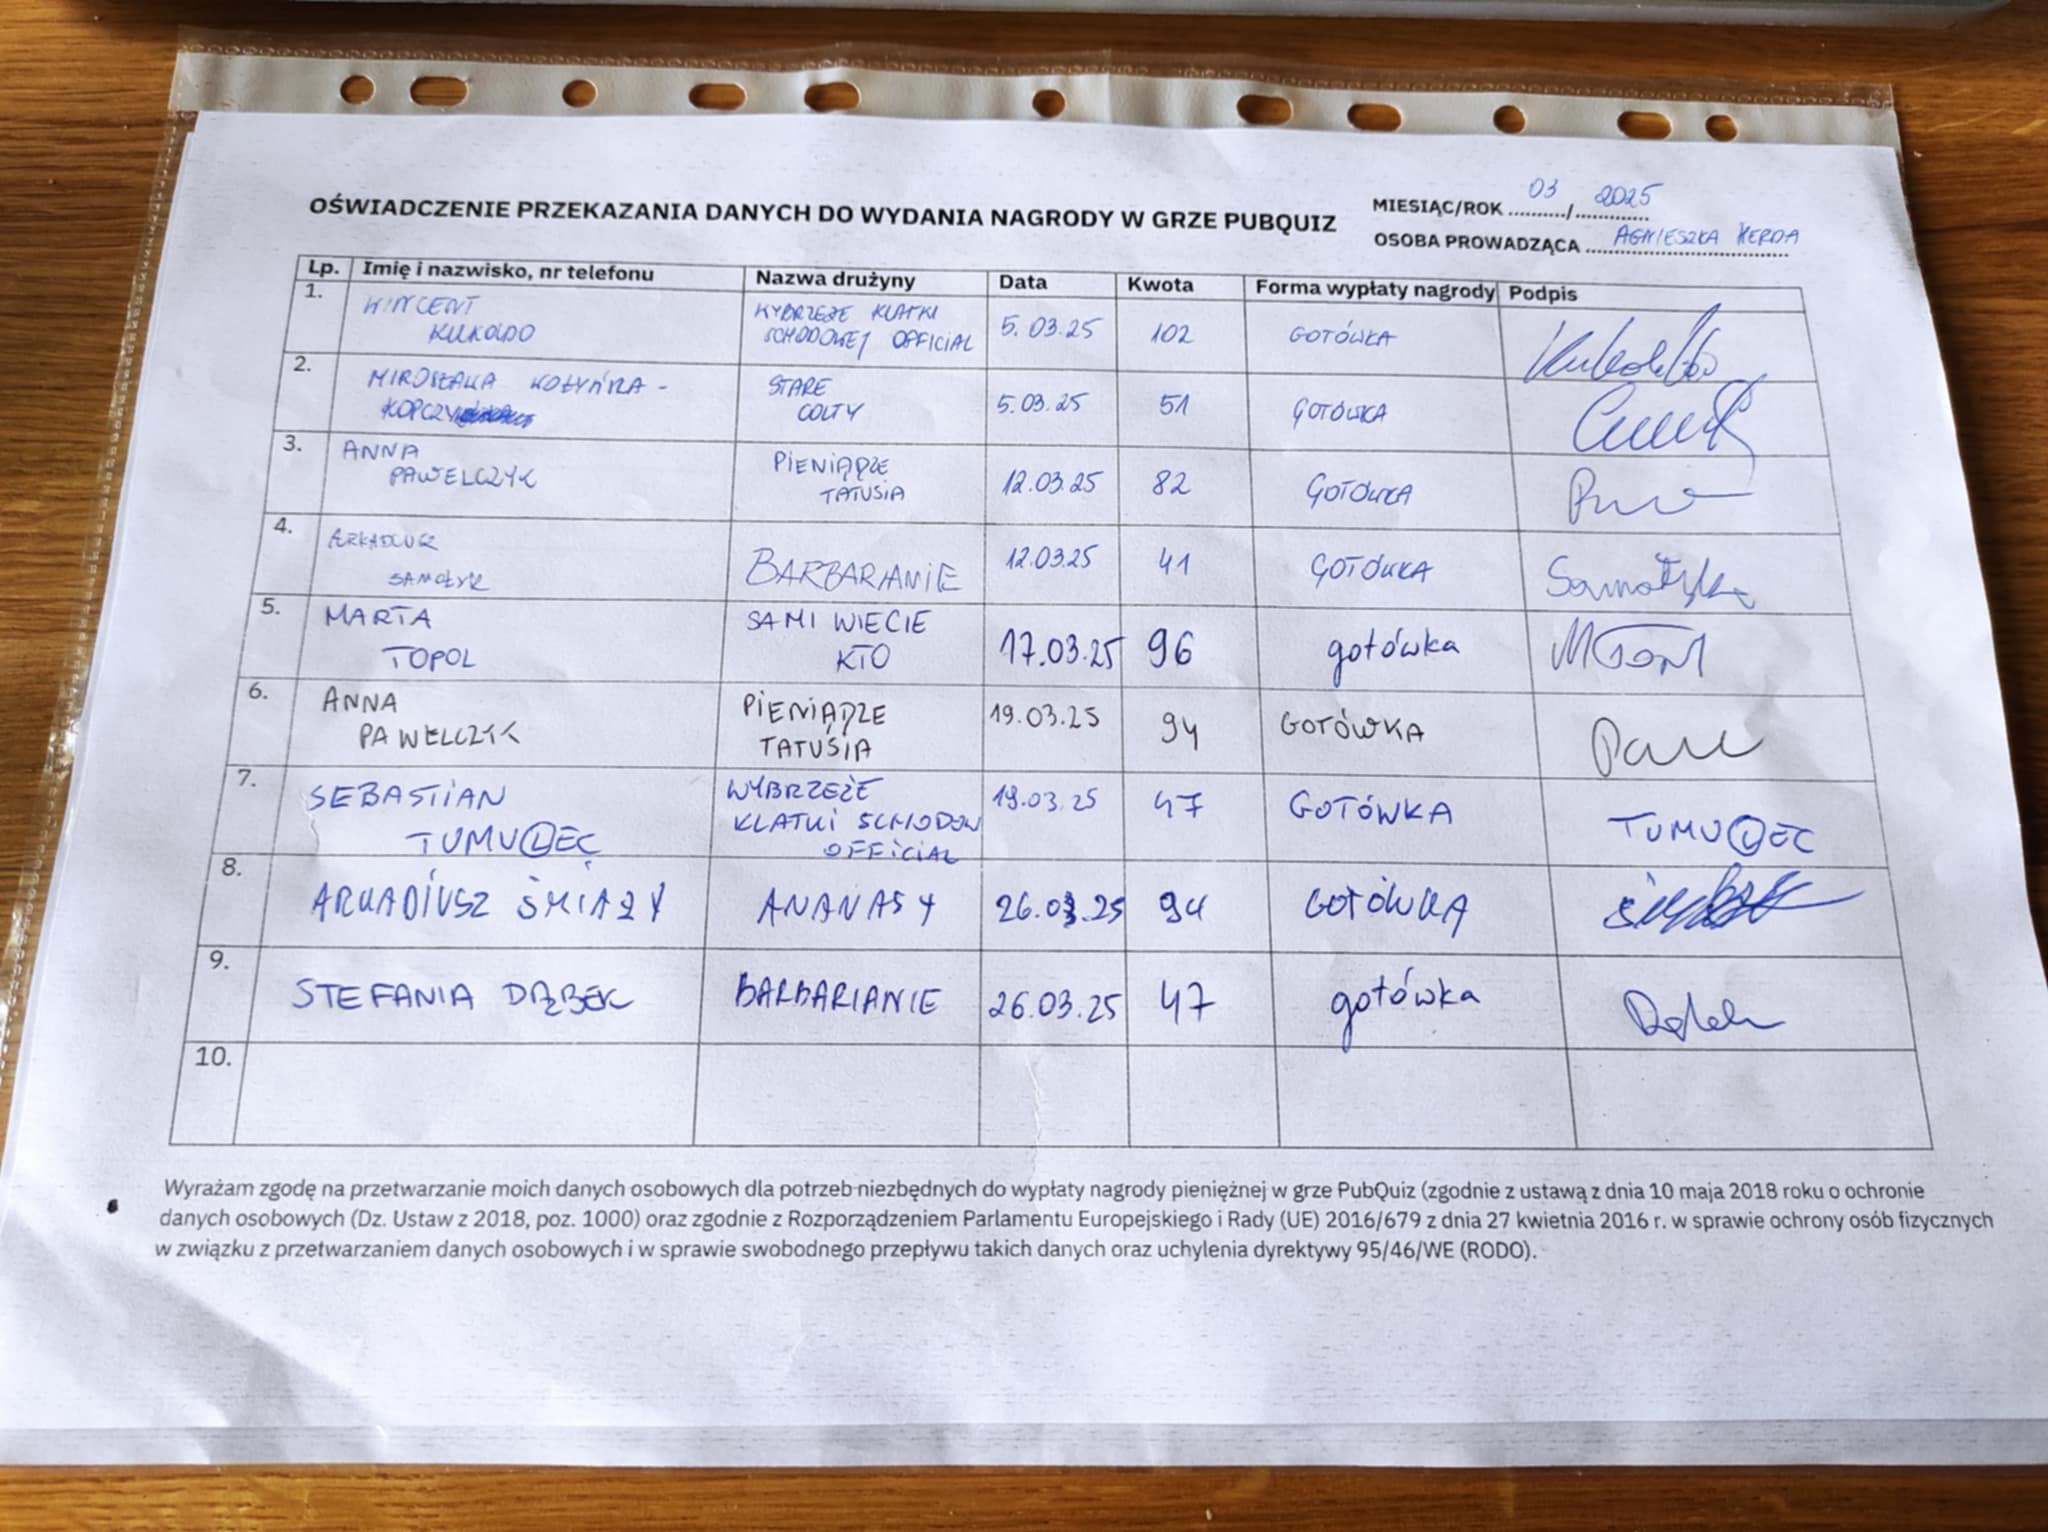 OŚWIADCZENIE PRZEKAZANIA DANYCH DO WYDANIA NAGRODY W GRZE PUBQUIZ
MIESIĄC/ROK 03 / 2025
OSOBA PROWADZĄCA AGNIESZKA
Lp. Imię i nazwisko, nr telefonu Nazwa drużyny Data Kwota Forma wypłaty nagrody Podpis
1. WINCENT WYBRZEŻE KLATKI
SCHODOWEJ OFFICIAL 5.03.25 102 GOTÓWKA
2. STARE 5.03.25 51 GOTÓWKA
COLTY
3. ANNA PIENIĄDZE
PAWELCZYK TATUSIA 12.03.25 82 GOTÓWKA
4. ARKADIUSZ 12.03.25 41 GOTÓWKA
SAMOŁYK BARBARIANIE
5. MARTA SAMI WIECIE
TOPOL KTO 17.03.25 96 gotówka
6. ANNA PIENIĄDZE 19.03.25 94 GOTÓWKA
PAWELCZYK TATUSIA
7. SEBASTIAN WYBRZEŻE 19.03.25 47 GOTÓWKA
TUMULEC KLATKI SCHODOW TUMULEC
OFFICIAL
8. ARKADIUSZ ŚMIAŻY ANANASY 26.03.25 94 GOTÓWKA
9. STEFANIA DĄBEK BARBARIANIE 26.03.25 47 gotówka Dąbek
10.
Wyrażam zgodę na przetwarzanie moich danych osobowych dla potrzeb niezbędnych do wypłaty nagrody pieniężnej w grze PubQuiz (zgodnie z ustawą z dnia 10 maja 2018 roku o ochronie
danych osobowych (Dz. Ustaw z 2018, poz. 1000) oraz zgodnie z Rozporządzeniem Parlamentu Europejskiego i Rady (UE) 2016/679 z dnia 27 kwietnia 2016 r. w sprawie ochrony osób fizycznych
w związku z przetwarzaniem danych osobowych i w sprawie swobodnego przepływu takich danych oraz uchylenia dyrektywy 95/46/WE (RODO).